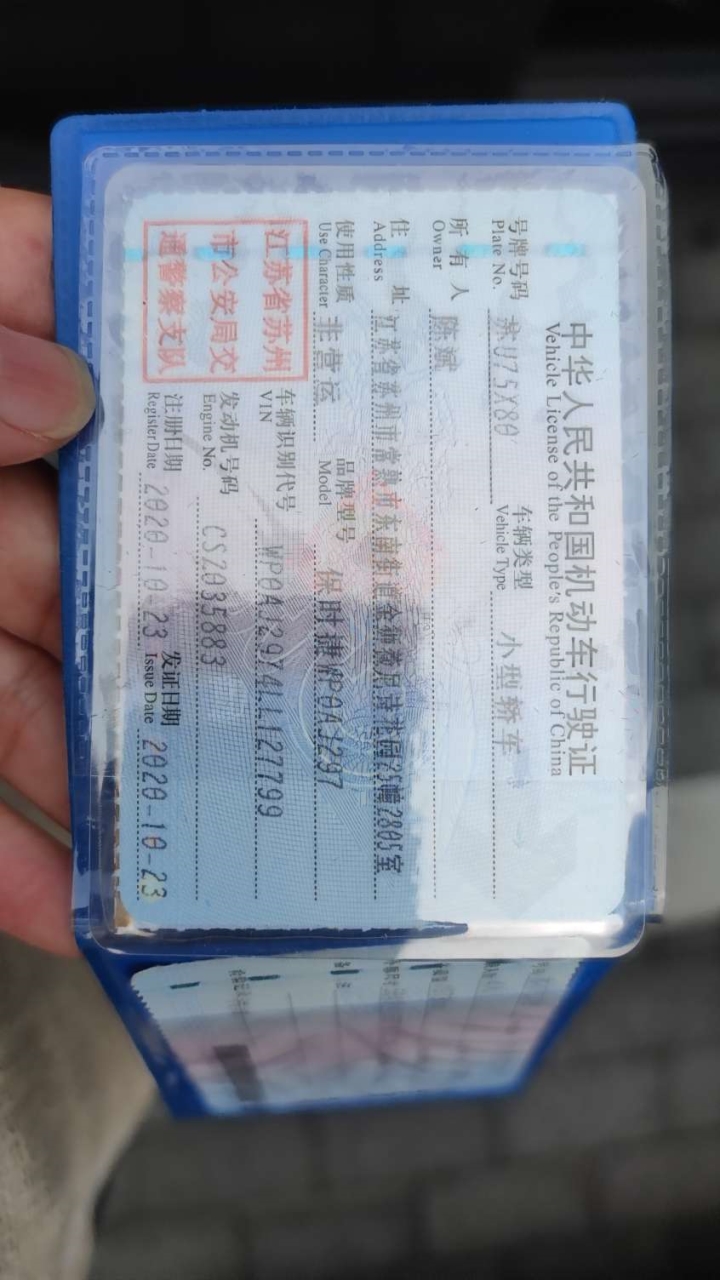 中华人民共和国机动车行驶证
Vehicle License of the People's Republic of China
号牌号码 苏U75X80 车辆类型 小型轿车
Plate No. Vehicle Type
所有人 陈斌
Owner
住址 江苏省苏州市常熟市东南街道金狮湾尼吉花园25幢2805室
Address
使用性质 非营运 品牌型号 保时捷WP0AJ297
Use Character Model
江苏省苏州
市公安局交
通警察支队
车辆识别代号 WP0AJ29Y4LL127799
VIN
发动机号码 CSZ035883
Engine No.
注册日期 2020-10-23 发证日期 2020-10-23
Register Date Issue Date